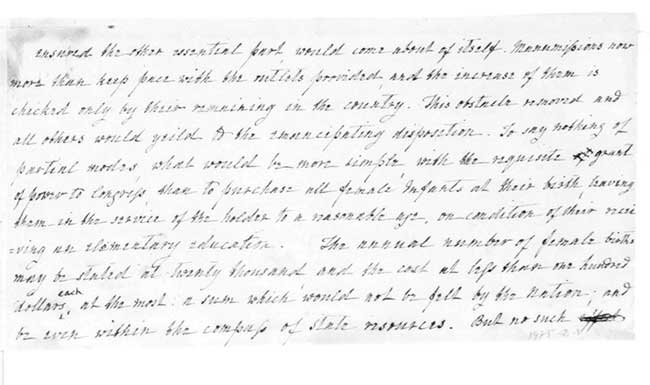 ensured the other essential part, would come about of itself. Manumissions now
more than keep pace with the outlets provided, and the increase of them is
checked only by their remaining in the country. This obstacle removed and
all others would yeild to the emancipating disposition. To say nothing of
partial modes, what would be more simple, with the requisite grant
of power to Congress, than to purchase all female Infants at their birth, leaving
them in the service of the holder to a reasonable age, on condition of their recei
=ving an elementary education. The annual number of female births
may be stated at twenty thousand, and the cost at less than one hundred
dollars each, at the most: a sum which would not be felt by the Nation, and
be even within the compass of state resources. But no such